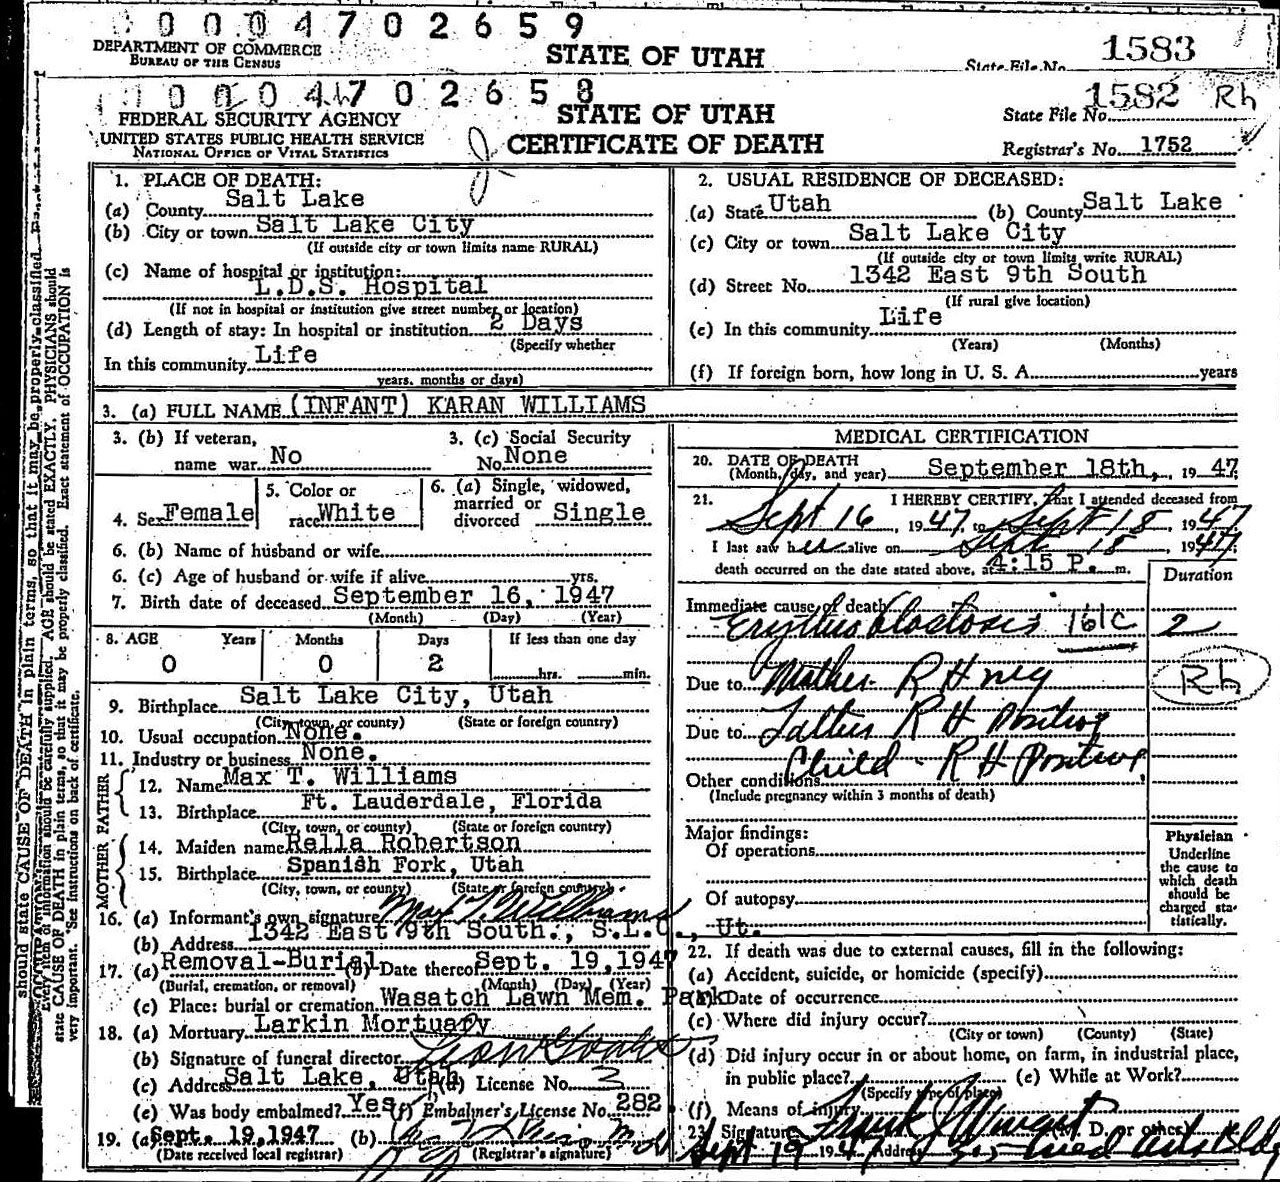 0004702659
DEPARTMENT OF COMMERCE
BUREAU OF THE CENSUS
STATE OF UTAH
State File No. 1583
0004702658
FEDERAL SECURITY AGENCY
UNITED STATES PUBLIC HEALTH SERVICE
NATIONAL OFFICE OF VITAL STATISTICS
STATE OF UTAH
CERTIFICATE OF DEATH
State File No. 1582 Rh
Registrar's No. 1752
1. PLACE OF DEATH:
(a) County Salt Lake
(b) City or town Salt Lake City
(If outside city or town limits name RURAL)
(c) Name of hospital or institution:
L.D.S. Hospital
(If not in hospital or institution give street number or location)
(d) Length of stay: In hospital or institution 2 Days
(Specify whether
In this community Life
years, months or days)
2. USUAL RESIDENCE OF DECEASED:
(a) State Utah (b) County Salt Lake
(c) City or town Salt Lake City
(If outside city or town limits write RURAL)
(d) Street No. 1342 East 9th South
(If rural give location)
(e) In this community Life
(Years) (Months)
(f) If foreign born, how long in U. S. A. years
3. (a) FULL NAME (INFANT) KARAN WILLIAMS
3. (b) If veteran, name war No
3. (c) Social Security No. None
4. Sex Female
5. Color or race White
6. (a) Single, widowed, married or divorced Single
6. (b) Name of husband or wife
6. (c) Age of husband or wife if alive yrs.
7. Birth date of deceased September 16, 1947
(Month) (Day) (Year)
8. AGE Years Months Days If less than one day
0 0 2 hrs. min.
9. Birthplace Salt Lake City, Utah
(City, town, or county) (State or foreign country)
10. Usual occupation None.
11. Industry or business None.
FATHER
12. Name Max T. Williams
13. Birthplace Ft. Lauderdale, Florida
(City, town, or county) (State or foreign country)
MOTHER
14. Maiden name Rella Robertson
15. Birthplace Spanish Fork, Utah
(City, town, or county) (State or foreign country)
16. (a) Informant's own signature Max T. Williams
(b) Address 1342 East 9th South., S.L.C., Ut.
17. (a) Removal-Burial (b) Date thereof Sept. 19,1947
(Burial, cremation, or removal) (Month) (Day) (Year)
(c) Place: burial or cremation Wasatch Lawn Mem. Park
18. (a) Mortuary Larkin Mortuary
(b) Signature of funeral director
(c) Address Salt Lake, Utah (d) License No. 3
(e) Was body embalmed? Yes (f) Embalmer's License No. 282
19. (a) Sept. 19,1947 (b)
(Date received local registrar) (Registrar's signature)
MEDICAL CERTIFICATION
20. DATE OF DEATH
(Month, day, and year) September 18th, 1947
21. I HEREBY CERTIFY, That I attended deceased from
Sept 16 1947 to Sept 18, 1947
I last saw her alive on Sept 18, 1947
death occurred on the date stated above, at 4:15 P. m.
Duration
Immediate cause of death
Erythroblastosis 161C 2
Due to Mother RH neg Rh
Due to Father RH Positive
Child - RH Positive
Other conditions
(Include pregnancy within 3 months of death)
Major findings:
Of operations
Of autopsy
Physician
Underline
the cause to
which death
should be
charged sta-
tistically.
22. If death was due to external causes, fill in the following:
(a) Accident, suicide, or homicide (specify)
(b) Date of occurrence
(c) Where did injury occur?
(City or town) (County) (State)
(d) Did injury occur in or about home, on farm, in industrial place,
in public place? (e) While at Work?
(Specify type of place)
(f) Means of injury
23. Signature Frank J. (M. D. or other)
Sept 19 1947 Address Med Arts Bldg
should state CAUSE OF DEATH in plain terms, so that it may be properly classified.
Every item of information should be carefully supplied. AGE should be stated EXACTLY. PHYSICIANS should
state CAUSE OF DEATH in plain terms, so that it may be properly classified. Exact statement of OCCUPATION is
very important. See instructions on back of certificate.